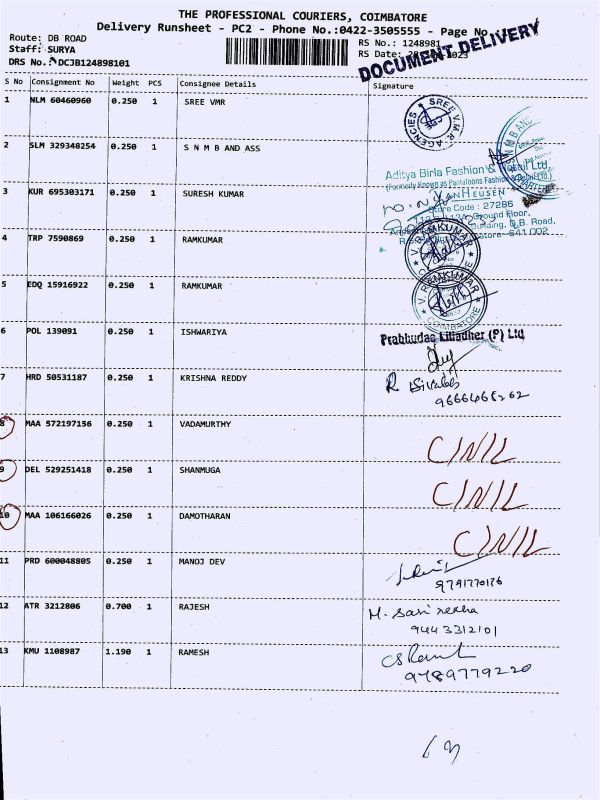 THE PROFESSIONAL COURIERS, COIMBATORE
Delivery Runsheet - PC2 - Phone No.:0422-3505555 - Page No.
Route: DB ROAD
Staff: SURYA
DRS No.: DCJB124898101
RS No.: 1248981
RS Date:
DOCUMENT DELIVERY
S No Consignment No Weight PCS Consignee Details Signature
1 NLM 60460960 0.250 1 SREE VMR
SREE V.M.R. AGENCIES
CBE
2 SLM 329348254 0.250 1 S N M B AND ASS
Aditya Birla Fashion & Retail Ltd.
(Formerly Known as Pantaloons Fashion & Retail Ltd.)
VANHEUSEN
3 KUR 695303171 0.250 1 SURESH KUMAR
Store Code : 27286
Ground Floor,
Building, D.B. Road,
641 002
4 TRP 7590869 0.250 1 RAMKUMAR
V. RAMKUMAR
5 EDQ 15916922 0.250 1 RAMKUMAR
V. RAMKUMAR
COIMBATORE
6 POL 139091 0.250 1 ISHWARIYA
Prabhudas Lilladher (P) Ltd
7 HRD 50531187 0.250 1 KRISHNA REDDY
R
9666468262
8 MAA 572197156 0.250 1 VADAMURTHY
C/N/L
9 DEL 529251418 0.250 1 SHANMUGA
C/N/L
10 MAA 106166026 0.250 1 DAMOTHARAN
C/N/L
11 PRD 600048805 0.250 1 MANOJ DEV
9791770176
12 ATR 3212806 0.700 1 RAJESH
M. Sasi rekha
9443312101
13 KMU 1108987 1.190 1 RAMESH
9789779220